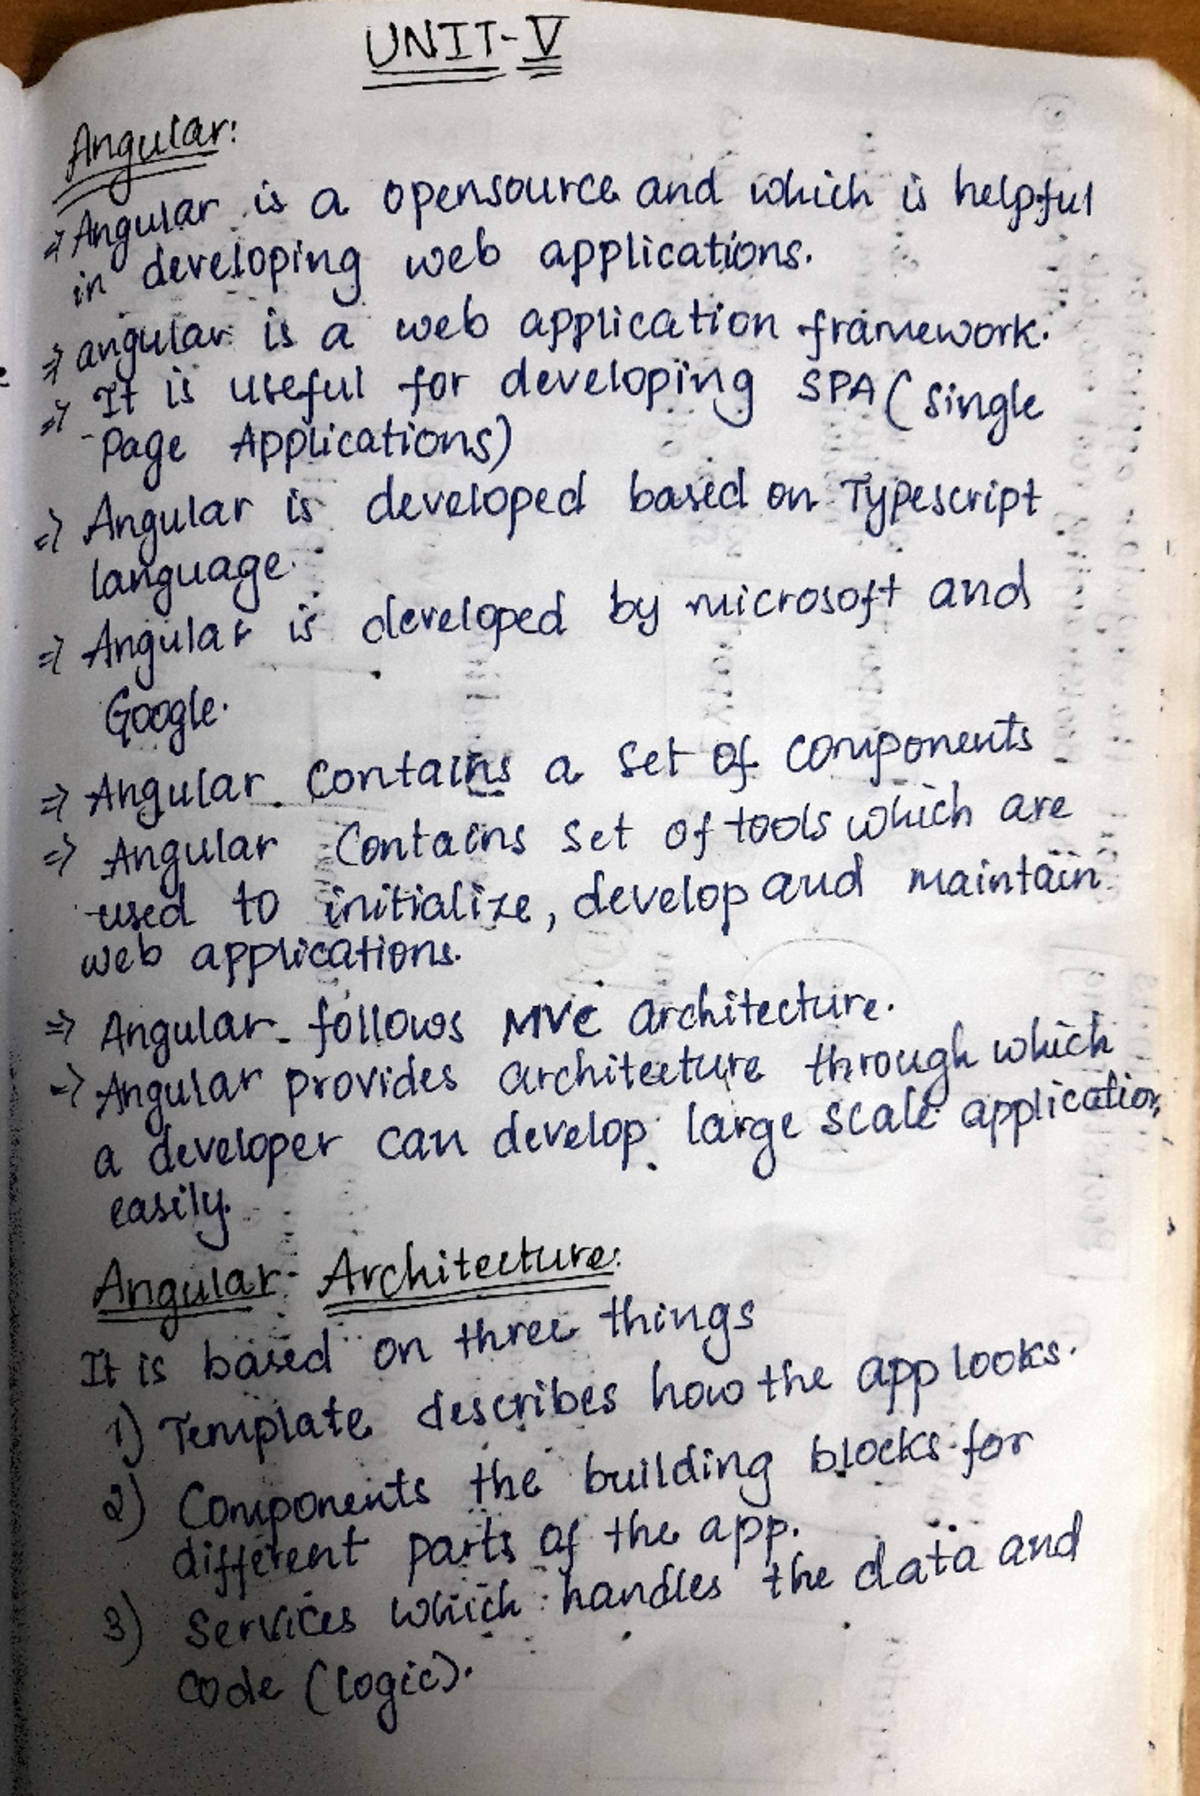 UNIT-V
Angular:
⇒ Angular is a opensource and which is helpful
in developing web applications.
⇒ angular is a web application framework.
⇒ It is useful for developing SPA (Single
Page Applications)
⇒ Angular is developed based on Typescript
language.
⇒ Angular is developed by microsoft and
Google.
⇒ Angular contains a set of components
⇒ Angular contains set of tools which are
used to initialize, develop and maintain
web applications.
⇒ Angular follows MVC architecture.
⇒ Angular provides architecture through which
a developer can develop large scale applications
easily.
Angular Architecture:
It is based on three things
1) Template describes how the app looks.
2) Components the building blocks for
different parts of the app.
3) Services which handles the data and
code (logic).